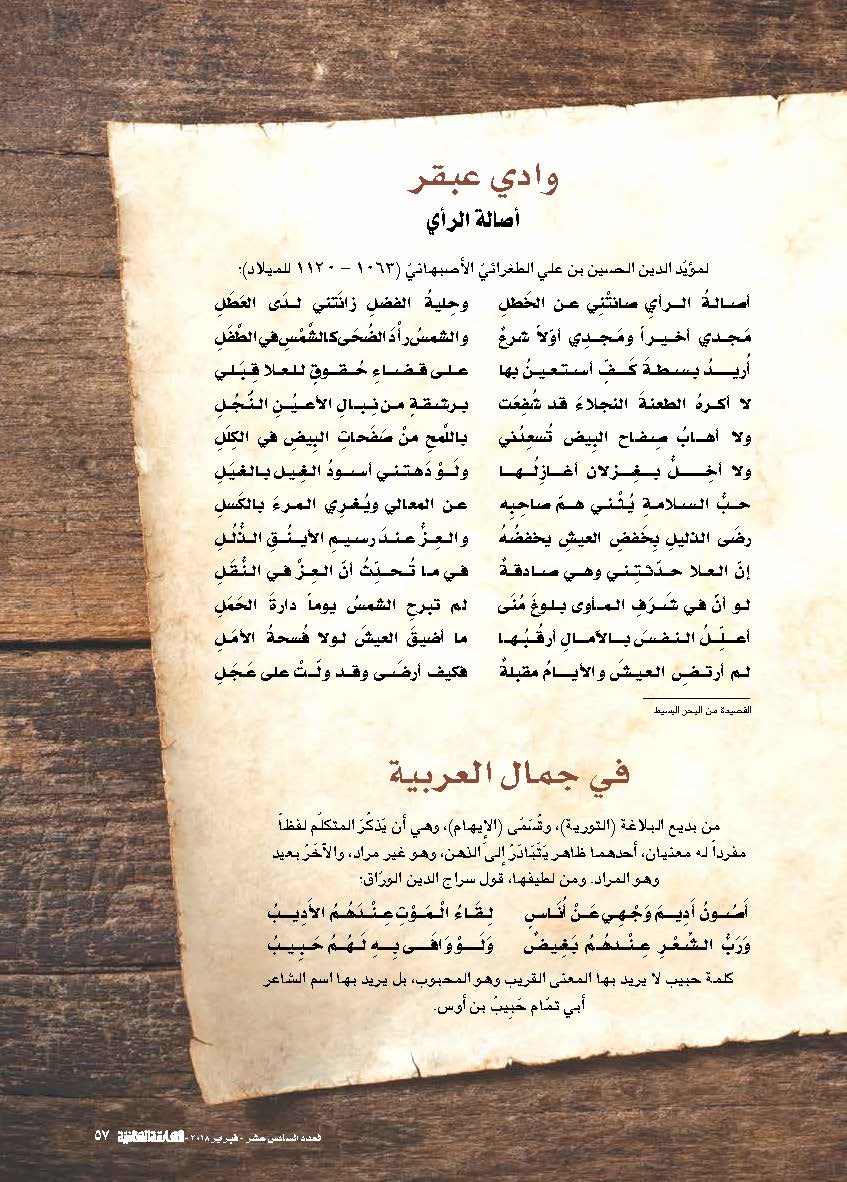 وادي عبقر
أصالة الرأي
لمؤيّد الدين الحسين بن علي الطغرائيّ الأصبهانيّ (١٠٦٣ – ١١٢٠ للميلاد):
أصالةُ الرأي صانتْني عن الخَطلِ وحليةُ الفضلِ زانَتني لدَى العَطَلِ
مَجدي أخيراً ومَجدِي أوّلاً شرعٌ والشمسُ رأْدَ الضُحَى كالشَّمْسِ في الطَّفَلِ
أُريدُ بسطةَ كَفّ أستعينُ بها على قضاءِ حُقوقٍ للعلا قِبَلي
لا أكرهُ الطعنةَ النجلاءَ قد شُفِعَت برشقةٍ من نِبالِ الأعيُنِ النُّجُلِ
ولا أهابُ صِفاح البِيض تُسعِدُني باللَّمحِ مِنْ صفَحاتِ البِيضِ في الكِلَلِ
ولا أخِلُّ بغِزلان أغازِلُها ولَوْ دَهتني أسودُ الغِيل بالغيَلِ
حبُّ السلامةِ يُثْني همَّ صاحبِه عن المعالي ويُغرِي المرءَ بالكَسلِ
رضَى الذليلِ بِخَفضِ العيشِ يخفضُهُ والعِزُّ عندَ رسيمِ الأينُقِ الذُّلُلِ
إنّ العلا حدّثتْني وهي صادقةٌ في ما تُحدِّثُ أنّ العِزَّ في النقَلِ
لو أنّ في شَرَفِ المأوى بلوغَ مُنَى لم تبرحِ الشمسُ يوماً دارةَ الحَمَلِ
أعلِّلُ النفسَ بالآمالِ أرقُبُها ما أضيقَ العيشَ لولا فُسحةُ الأمَلِ
لم أرتضِ العيشَ والأيامُ مقبلةٌ فكيف أرضَى وقد ولّتْ على عَجَلِ
القصيدة من البحر البسيط
في جمال العربية
من بديع البلاغة (التورية)، وتُسَمّى (الإيهام)، وهي أن يَذكُرَ المتكلّم لفظاً
مفرداً له معنيان، أحدهما ظاهر يَتَبَادَرُ إلى الذهن، وهو غير مراد، والآخَرُ بعيد
وهو المراد. ومن لطيفها، قول سراج الدين الورّاق:
أَصُونُ أَدِيمَ وَجْهِي عَنْ أُنَاسٍ لِقَاءُ الْمَوْتِ عِنْدَهُمُ الأَدِيبُ
وَرَبُّ الشِّعْرِ عِنْدهُمُ بَغِيضٌ وَلَوْ وَافَى بِهِ لَهُمُ حَبِيبُ
كلمة حبيب لا يريد بها المعنى القريب وهو المحبوب، بل يريد بها اسم الشاعر
أبي تمّام حَبِيبُ بن أوس.
العدد السادس عشر - فبراير ٢٠١٨ - ٥٧